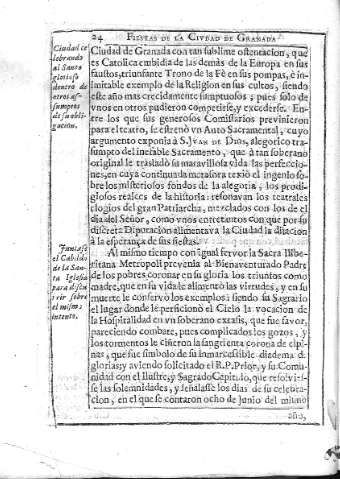 24 FIESTAS DE LA CIVDAD DE GRANADA
Ciudad ce
lebrando
al Santo
glorioso
dentro de
otros as-
sumptos
de su obli-
gacion.
Ciudad de Granada con tan sublime ostentacion, que
es Catolica embidia de las demàs de la Europa en sus
faustos, triunfante Trono de la Fè en sus pompas, è in-
imitable exemplo de la Religion en sus cultos, siendo
este año mas crecidamente sumptuosos; pues solo de
vnos en otros pudieron competirse, y excederse. En-
tre los que sus generosos Comissarios previnieron
para el teatro, se estrenò vn Auto Sacramental, cuyo
argumento exponia à S. JVAN DE DIOS, alegorico tra-
sumpto del inefable Sacramento, que à tan soberano
original le trasladò su maravillosa vida las perfeccio-
nes, en cuya continuada metafora texiò el ingenio so-
bre los misteriosos fondos de la alegoria, los prodi-
giosos realces de la historia: resonavan los teatrales
elogios del gran Patriarcha, mezclados con los de el
dia del Señor, como vnos entretantos con que por su
discreta Diputacion alimentava la Ciudad la dilacion
à la esperança de sus fiestas.
Juntase
el Cabildo
de la San-
ta Iglesia
para discu
rir sobre
el mismo
intento.
Al mismo tiempo con igual fervor la Sacra Illibe-
ritana Metropoli prevenia al Bienaventurado Padre
de los pobres coronar en su gloria los triunfos como
madre, que en su vida le alimentò las virtudes, y en su
muerte le conservò los exemplos: siendo su Sagrario
el lugar donde le perficionò el Cielo la vocacion de
la Hospitalidad en vn soberano extasis, que fue favor,
pareciendo combate, pues complicados los gozos, y
los tormentos le ciñeron la sangrienta corona de espi-
nas, que fue simbolo de su inmarcessible diadema de
glorias; y aviendo solicitado el R. P. Prior, y su Comu-
nidad con el Ilustre, y Sagrado Capitulo, que resolvies-
se las solemnidades, y señalasse los dias de su celebra-
cion, en el que se contaron ocho de Junio del mismo
año,